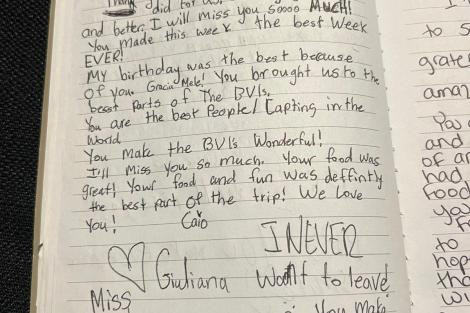 Thank
did for us
and better. I will miss you soooo MUCH!
You made this week the best week
EVER!
My birthday was the best because
of you. Gracia Mele! You brought us to the
besst parts of The BVIs,
You are the best People/Capting in the
World
You Make the BVIs Wonderful!
I'll Miss You so much. Your food was
great! Your food and fun was deffintly
the best part of the trip! We Love
you!
Caio
I NEVER
♡ Giuliana Want to leave
Miss
You Make
to s
grate
aman
You
and
of ar
had
food
to
hop
tha
wi